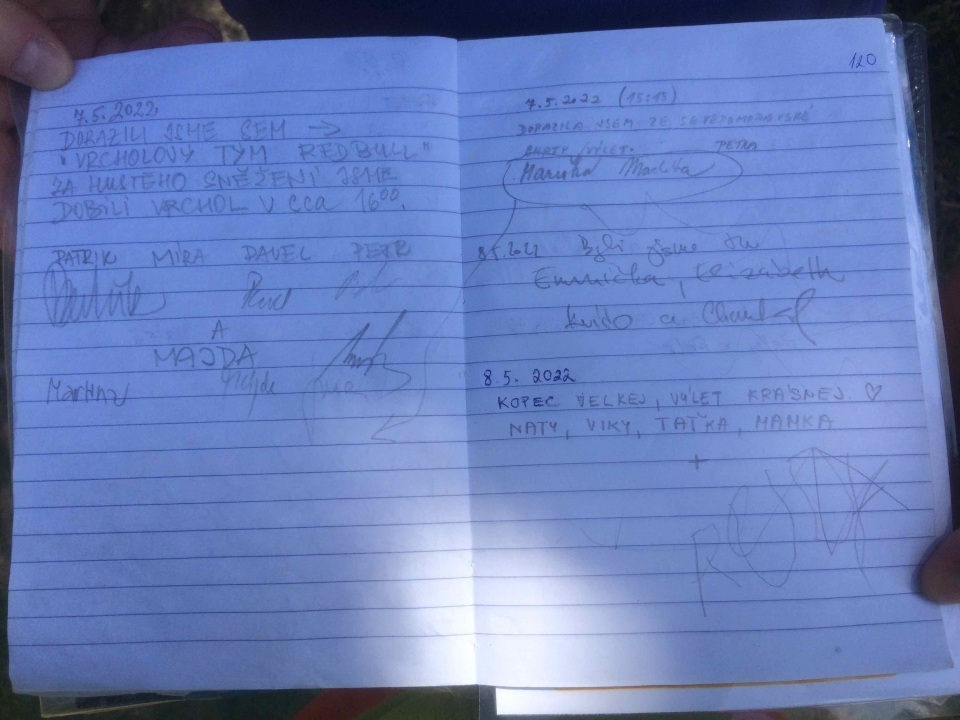 7.5.2022
DORAZILI JSME SEM →
"VRCHOLOVÝ TÝM REDBULL"
ZA HUSTÉHO SNĚŽENÍ JSME
DOBILI VRCHOL V CCA 16⁰⁰.
PATRIK MÍRA PAVEL PETR
A
MAJDA
Martina
120
7.5.2022 (15:15)
DORAZILA JSEM ZE SEVEROMORAVSKÉ
CHATY VÝLET. PETRA
8.5.2022 Byli jsme tu
Emmička, Elizabeth
Kvido a
8.5. 2022
KOPEC VELKEJ, VÝLET KRÁSNEJ ♡
NATY, VIKY, TAŤKA, MAMKA
+